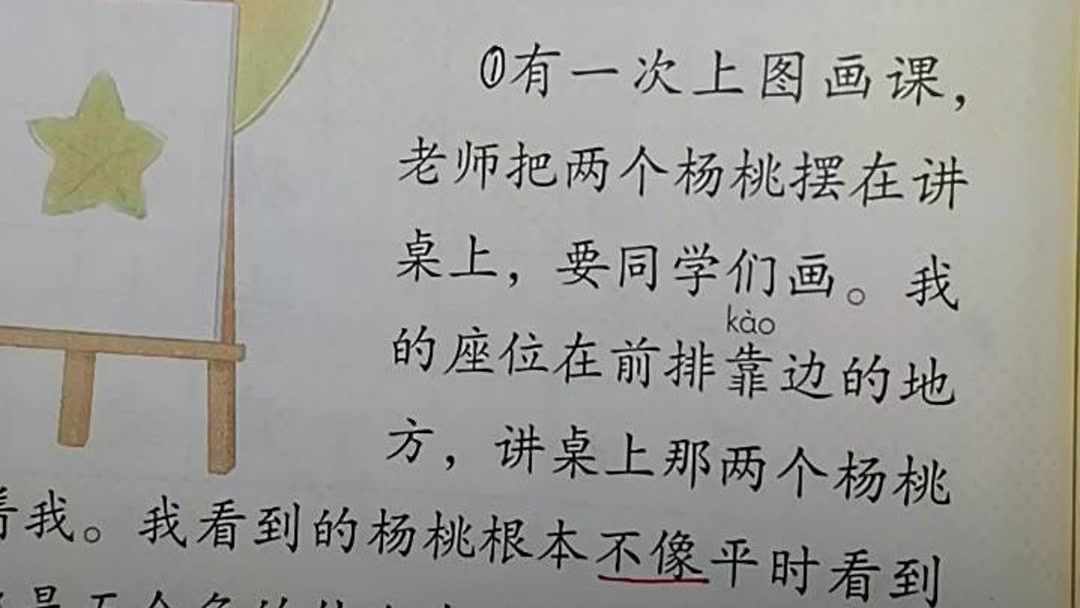 ①有一次上图画课，
老师把两个杨桃摆在讲
桌上，要同学们画。我
kào
的座位在前排靠边的地
方，讲桌上那两个杨桃
着我。我看到的杨桃根本不像平时看到